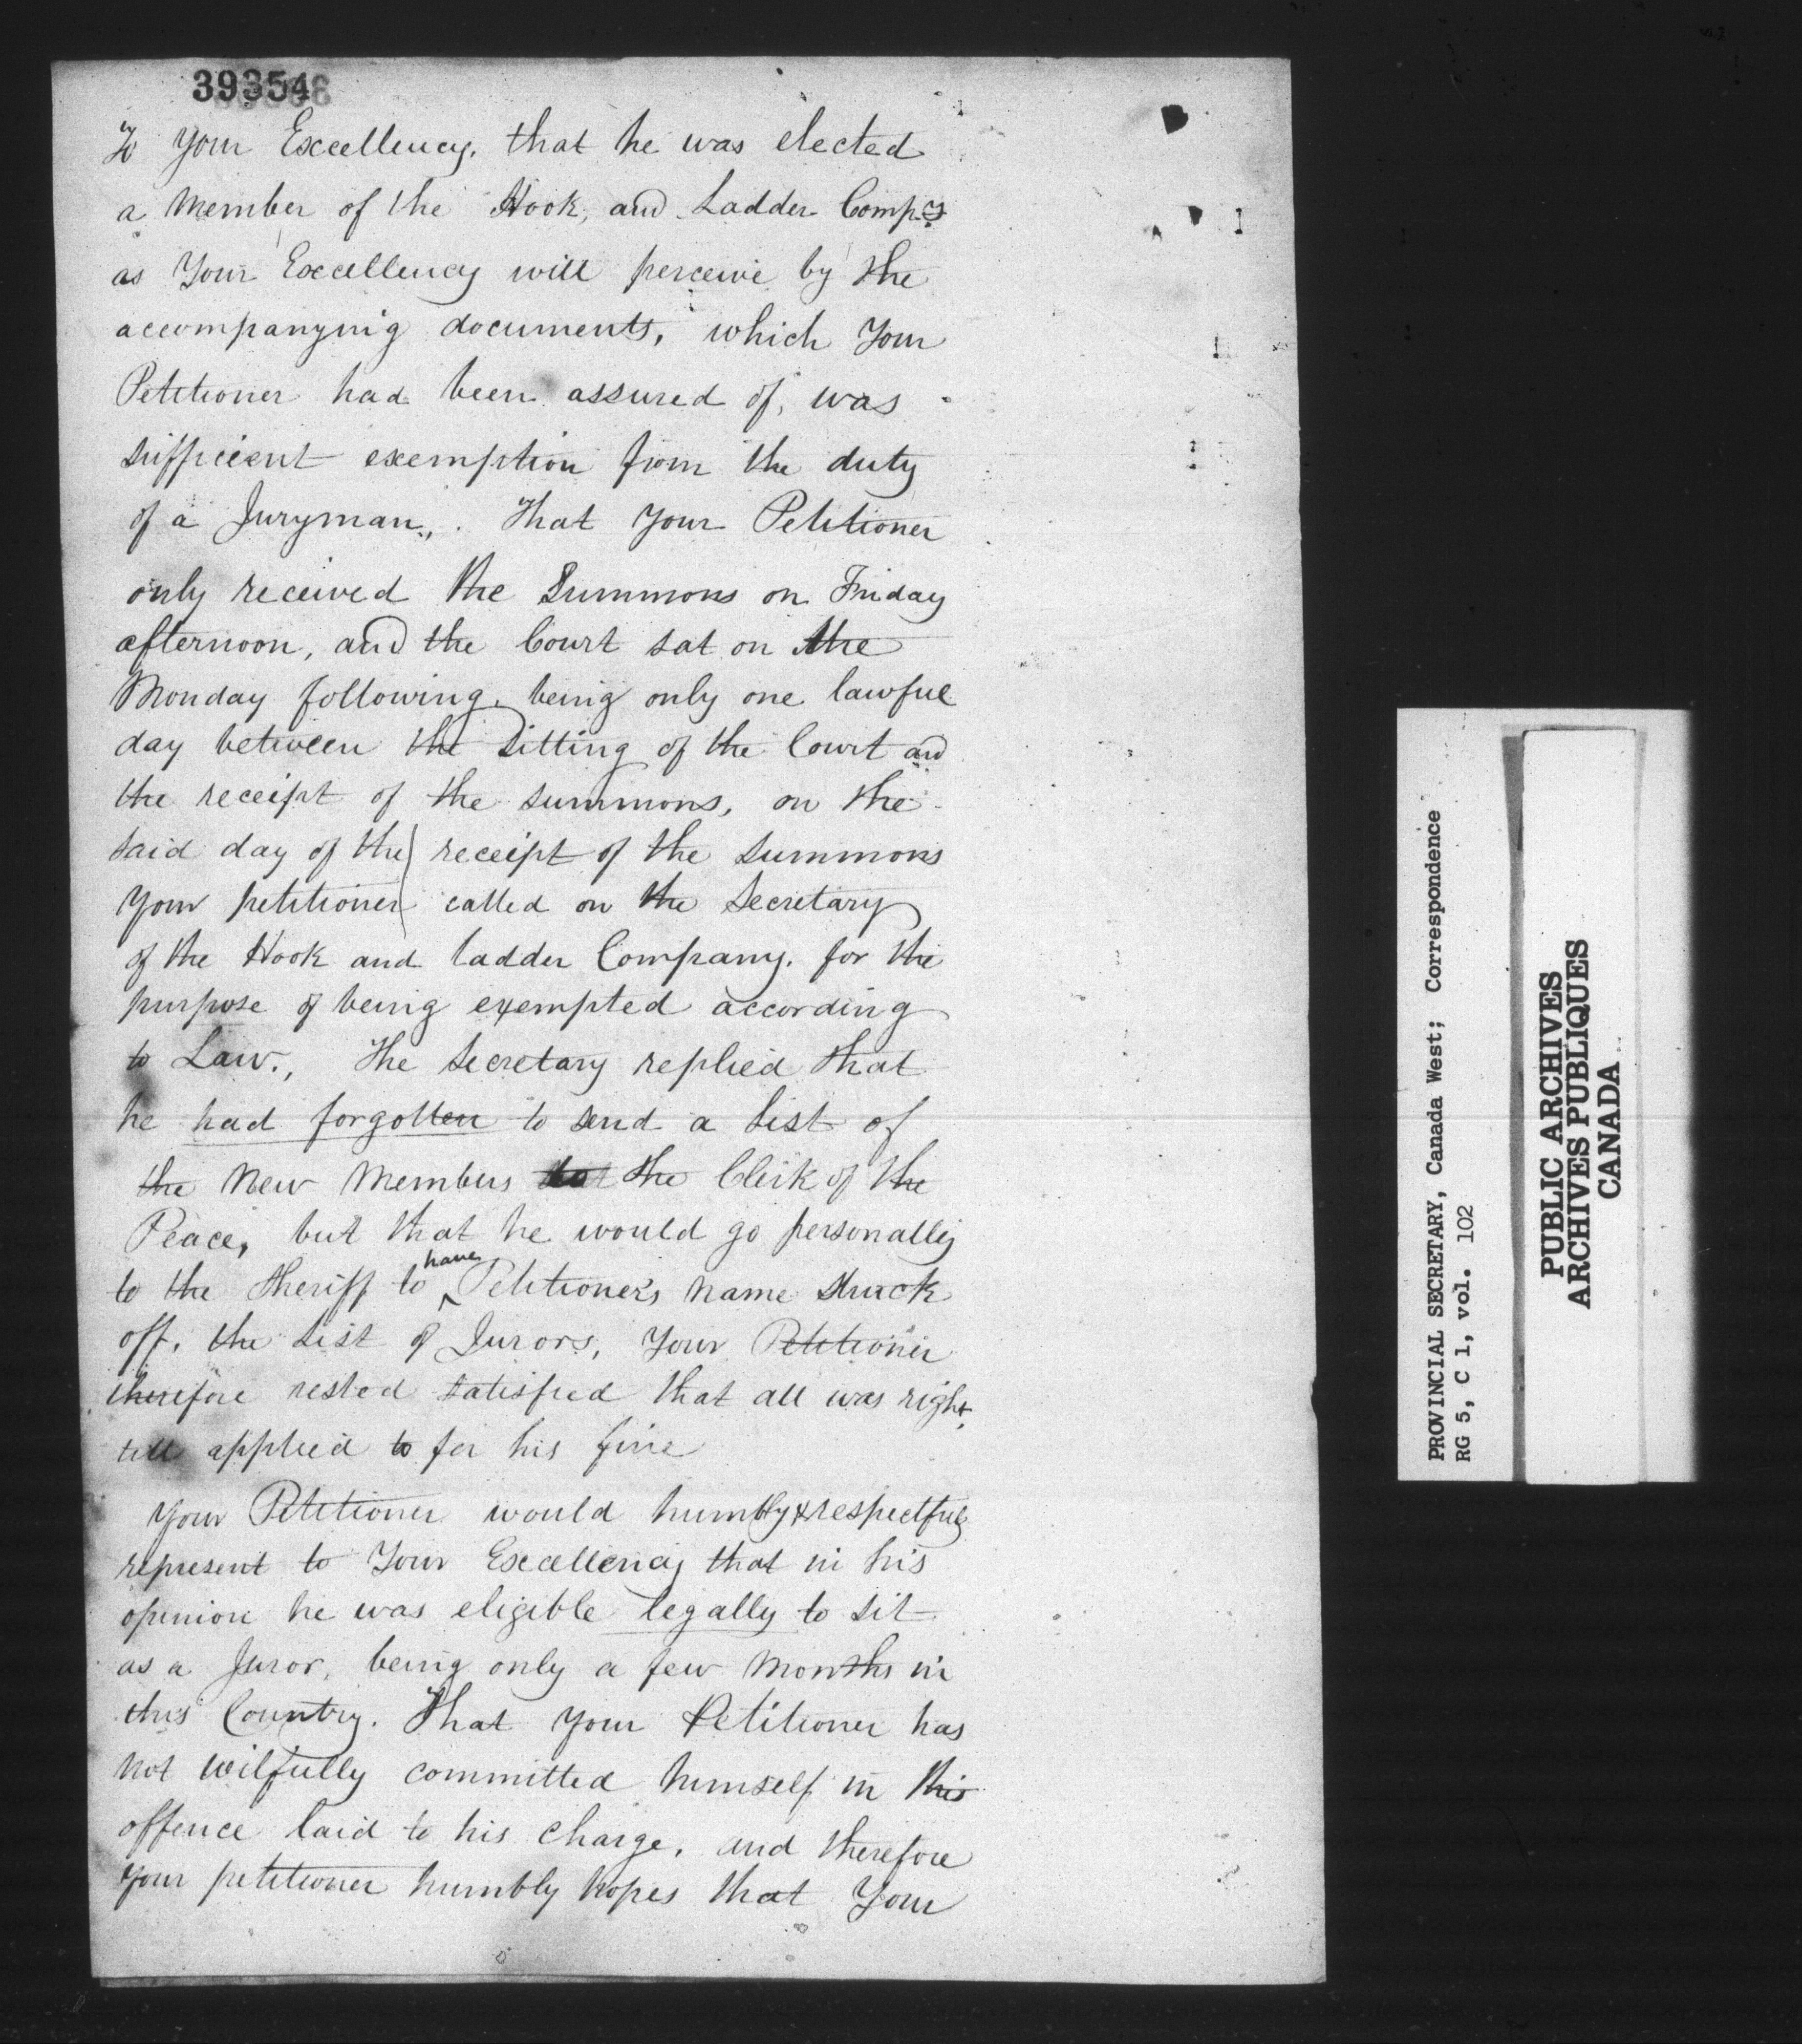 39354
To Your Excellency, that he was elected
a Member of the Hook, and Ladder Compy
as Your Excellency will perceive by the
accompanying documents, which Your
Petitioner had been assured of, was
sufficient exemption from the duty
of a Juryman,. That Your Petitioner
only received the Summons on Friday
afternoon, and the Court sat on the
Monday following, being only one lawful
day between the Sitting of the Court and
the receipt of the summons, on the
said day of the receipt of the summons
Your petitioner called on the Secretary
of the Hook and Ladder Company. for the
purpose of being exempted according
to Law., The Secretary replied that
he had forgotten to send a List of
the New Members to the Clerk of the
Peace, but that he would go personally
to the Sheriff to have Petitioners name struck
off, the List of Jurors, Your Petitioner
therefore rested satisfied that all was right
till applied to for his fine
Your Petitioner would humbly & respectfuly
represent to Your Excellency that in his
opinion he was eligible legally to sit
as a Juror, being only a few Months in
this Country. That Your Petitioner has
not wilfully committed himself in this
offence laid to his charge, and therefore
Your petitioner humbly hopes that Your
PROVINCIAL SECRETARY, Canada West; Correspondence
RG 5, C 1, vol. 102
PUBLIC ARCHIVES
ARCHIVES PUBLIQUES
CANADA